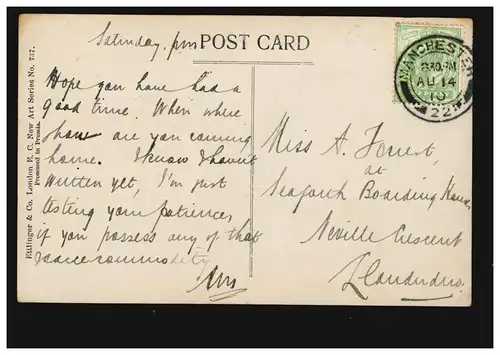 Saturday. pm
POST CARD
Hope you have had a
good time. When where
show are you coming
home. I know I havent
written yet, I'm just
testing your patience,
if you possess any of that
scarce commodity
Ettlinger & Co. London E. C. New Art Series No. 737.
Processed in Prussia.
MANCHESTER
AU 14
10
22
Miss A. Forrest,
at
Seaforth Boarding House
Neville Crescent
Llandudno.